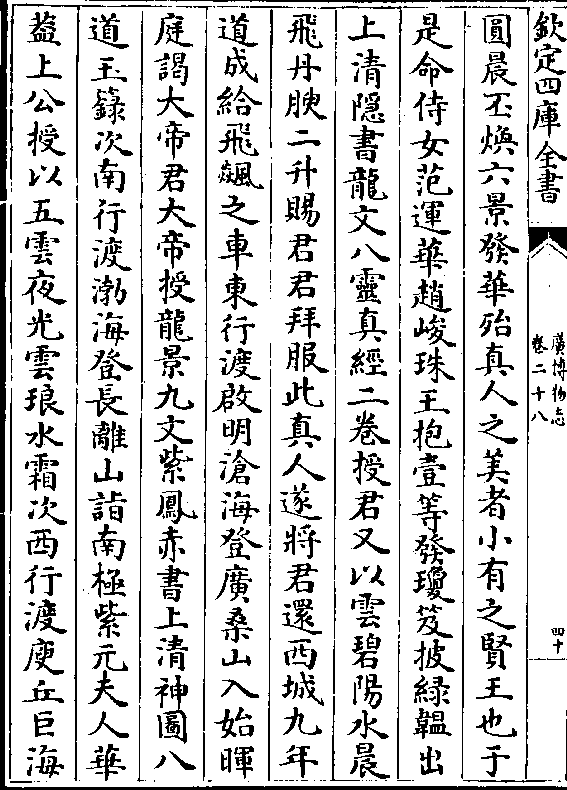 欽定四庫全書
廣博物志
卷二十八
四十
圓晨丕煥六景發華殆真人之美者小有之賢王也于
是命侍女范運華趙峻珠王抱壹等發瓊笈披綠韞出
上清隠書龍文八靈真經二卷授君又以雲碧陽水晨
飛丹腴二升賜君君拜服此真人遂將君還西城九年
道成給飛飈之車東行渡啟明滄海登廣桑山入始暉
庭謁大帝君大帝授龍景九文紫鳳赤書上清神圖八
道玉籙次南行渡渤海登長離山詣南極紫元夫人華
葢上公授以五雲夜光雲琅水霜次西行渡庾丘巨海